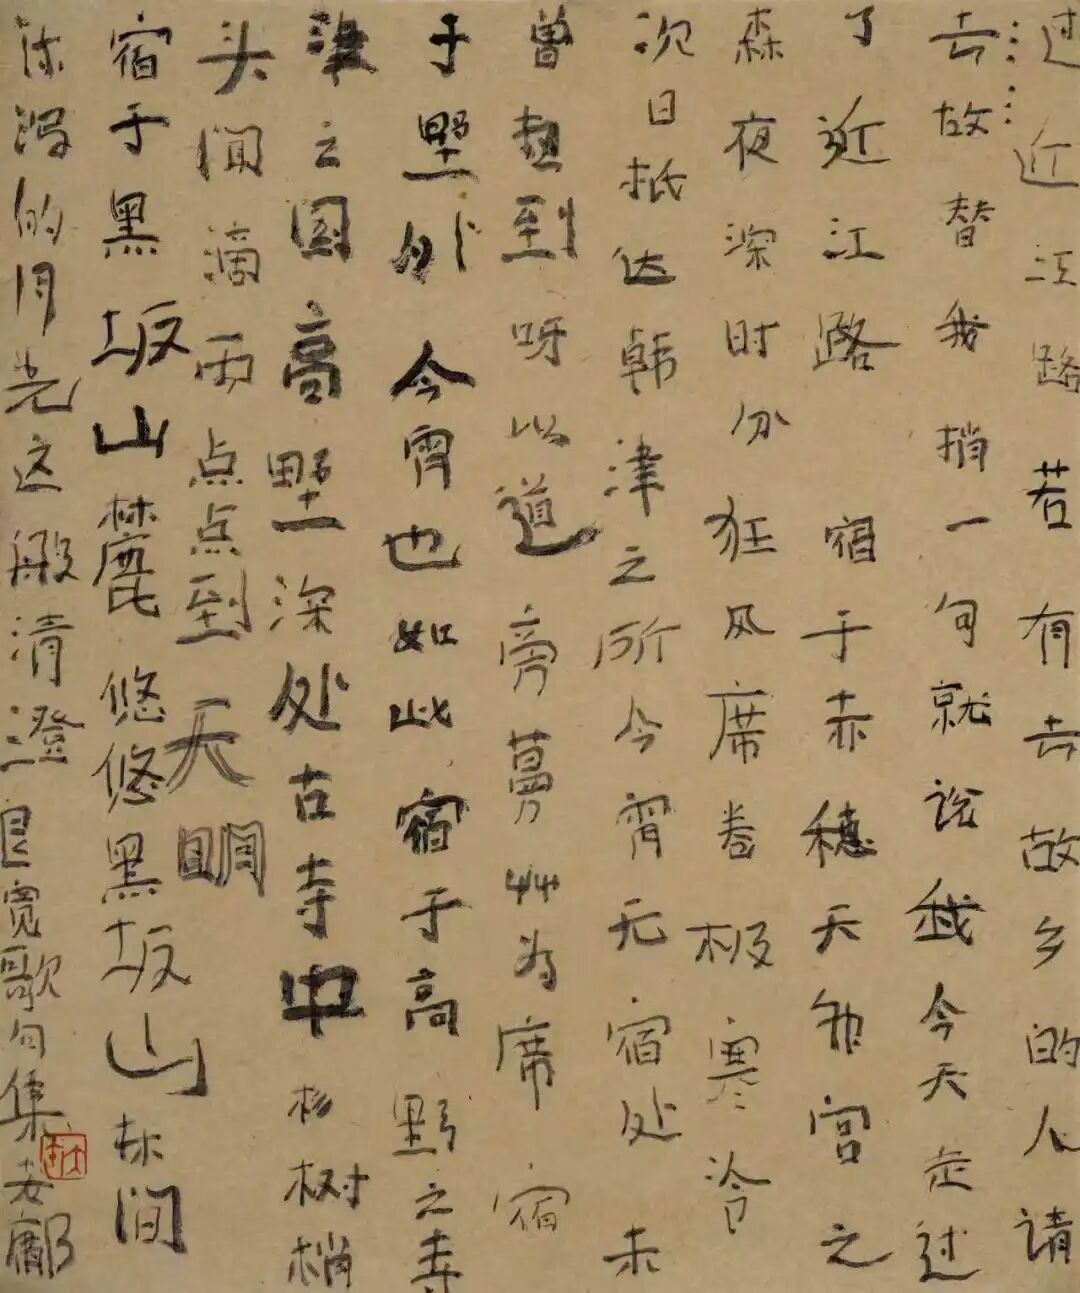 过近江路若有去故乡的人请
去故替我捎一句就说我今天走过
了近江路 宿于赤穗天神宫之
森夜深时分狂风席卷极寒冷
次日抵达韩津之所今宵无宿处未
曾想到呀以道旁萝草为席宿
于野外今宵也如此宿于高野之寺
津之国高野深处古寺中杉树梢
头闻滴雨点点到天明
宿于黑坂山麓悠悠黑坂山林间
流泻的月光这般清澄良宽歌句集